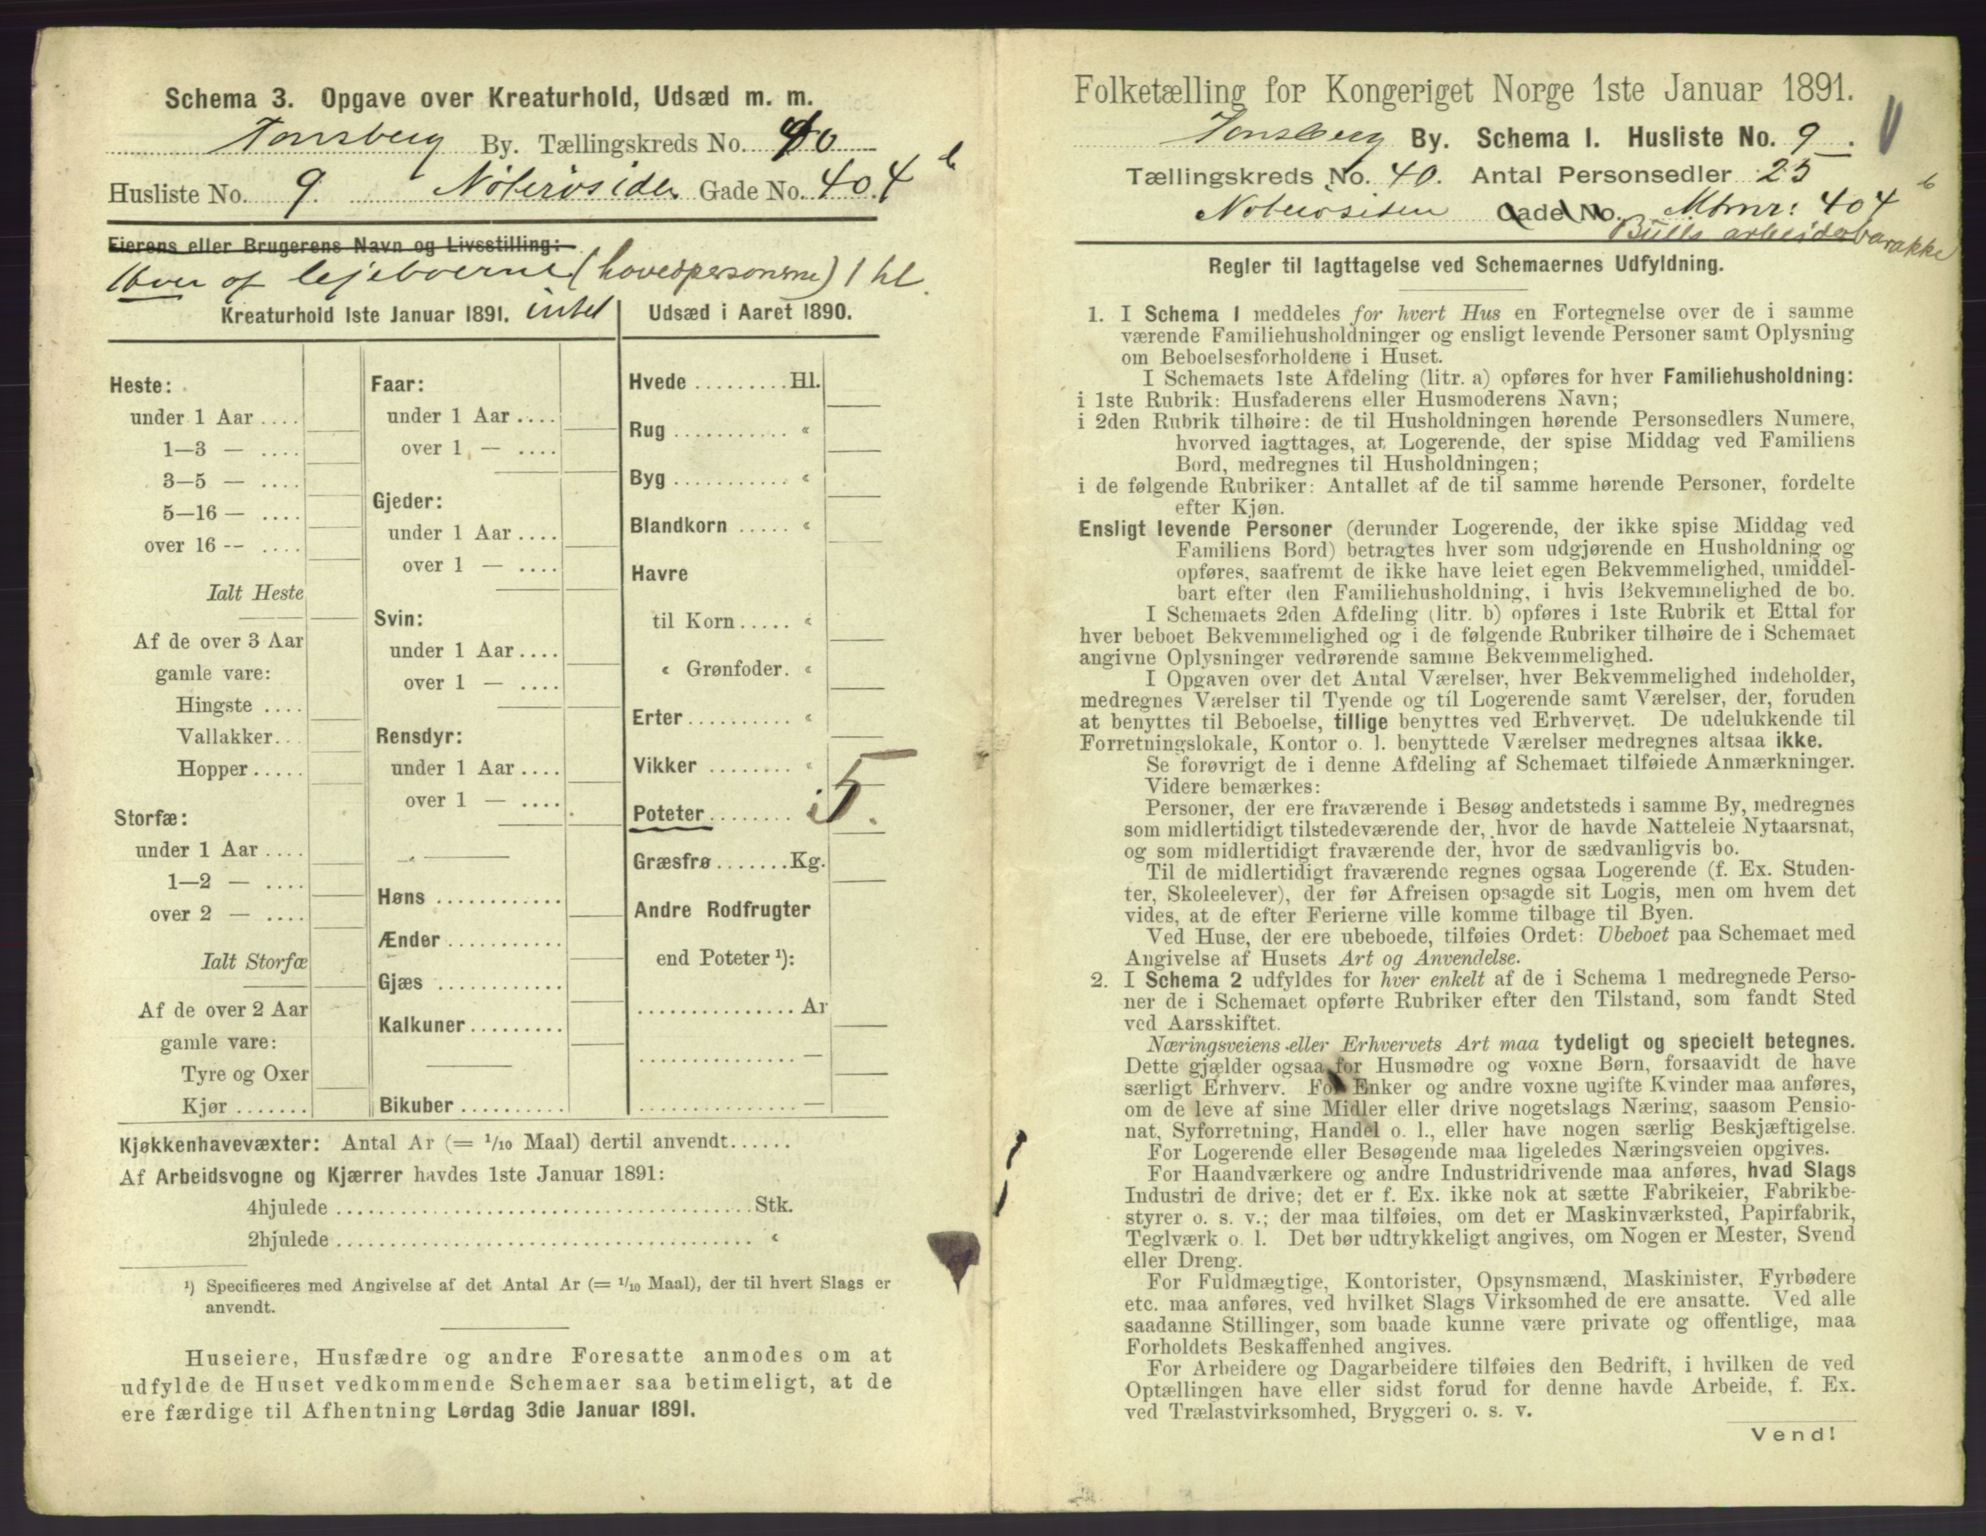 Schema 3. Opgave over Kreaturhold, Udsæd m. m.
Tønsberg By. Tællingskreds No. 40
Husliste No. 9. Nøterøsiden Gade No. 404 b
Eierens eller Brugerens Navn og Livsstilling:
Hver af lejeboerne (hovedpersonerne) 1 hl.
Kreaturhold 1ste Januar 1891. intet
Heste:
under 1 Aar....
1—3 — ....
3—5 — ....
5—16 — ....
over 16 -- ....
Ialt Heste
Af de over 3 Aar
gamle vare:
Hingste ....
Vallakker...
Hopper.....
Storfæ:
under 1 Aar....
1—2 — ....
over 2 — ....
Ialt Storfæ
Af de over 2 Aar
gamle vare:
Tyre og Oxer
Kjør.......
Faar:
under 1 Aar....
over 1 — ....
Gjeder:
under 1 Aar....
over 1 — ....
Svin:
under 1 Aar....
over 1 — ....
Rensdyr:
under 1 Aar....
over 1 — ....
Høns ............
Ænder...........
Gjæs ............
Kalkuner.........
Bikuber..........
Udsæd i Aaret 1890.
Hvede .........Hl.
Rug ........... «
Byg ........... «
Blandkorn ..... «
Havre
til Korn..... «
« Grønfoder. «
Erter.......... «
Vikker ........ «
Poteter........ 5.
Græsfrø.......Kg.
Andre Rodfrugter
end Poteter ¹):
...............Ar
............... —
............... —
Kjøkkenhavevæxter: Antal Ar (= 1/10 Maal) dertil anvendt......
Af Arbeidsvogne og Kjærrer havdes 1ste Januar 1891:
4hjulede .......................................Stk.
2hjulede ....................................... «
¹) Specificeres med Angivelse af det Antal Ar (= 1/10 Maal), der til hvert Slags er
anvendt.
Huseiere, Husfædre og andre Foresatte anmodes om at
udfylde de Huset vedkommende Schemaer saa betimeligt, at de
ere færdige til Afhentning Lørdag 3die Januar 1891.
Folketælling for Kongeriget Norge 1ste Januar 1891.
Tønsberg By. Schema I. Husliste No. 9.
Tællingskreds No. 40. Antal Personsedler 25
Nøterøsiden Gade No. Mtrnr: 404 b
Bulls arbeiderbarakke
Regler til Iagttagelse ved Schemaernes Udfyldning.
1. I Schema I meddeles for hvert Hus en Fortegnelse over de i samme
værende Familiehusholdninger og ensligt levende Personer samt Oplysning
om Beboelsesforholdene i Huset.
I Schemaets 1ste Afdeling (litr. a) opføres for hver Familiehusholdning:
i 1ste Rubrik: Husfaderens eller Husmoderens Navn;
i 2den Rubrik tilhøire: de til Husholdningen hørende Personsedlers Numere,
hvorved iagttages, at Logerende, der spise Middag ved Familiens
Bord, medregnes til Husholdningen;
i de følgende Rubriker: Antallet af de til samme hørende Personer, fordelte
efter Kjøn.
Ensligt levende Personer (derunder Logerende, der ikke spise Middag ved
Familiens Bord) betragtes hver som udgjørende en Husholdning og
opføres, saafremt de ikke have leiet egen Bekvemmelighed, umiddel-
bart efter den Familiehusholdning, i hvis Bekvemmelighed de bo.
I Schemaets 2den Afdeling (litr. b) opføres i 1ste Rubrik et Ettal for
hver beboet Bekvemmelighed og i de følgende Rubriker tilhøire de i Schemaet
angivne Oplysninger vedrørende samme Bekvemmelighed.
I Opgaven over det Antal Værelser, hver Bekvemmelighed indeholder,
medregnes Værelser til Tyende og til Logerende samt Værelser, der, foruden
at benyttes til Beboelse, tillige benyttes ved Erhvervet. De udelukkende til
Forretningslokale, Kontor o. l. benyttede Værelser medregnes altsaa ikke.
Se forøvrigt de i denne Afdeling af Schemaet tilføiede Anmærkninger.
Videre bemærkes:
Personer, der ere fraværende i Besøg andetsteds i samme By, medregnes
som midlertidigt tilstedeværende der, hvor de havde Natteleie Nytaarsnat,
og som midlertidigt fraværende der, hvor de sædvanligvis bo.
Til de midlertidigt fraværende regnes ogsaa Logerende (f. Ex. Studen-
ter, Skoleelever), der før Afreisen opsagde sit Logis, men om hvem det
vides, at de efter Ferierne ville komme tilbage til Byen.
Ved Huse, der ere ubeboede, tilføies Ordet: Ubeboet paa Schemaet med
Angivelse af Husets Art og Anvendelse.
2. I Schema 2 udfyldes for hver enkelt af de i Schema 1 medregnede Perso-
ner de i Schemaet opførte Rubriker efter den Tilstand, som fandt Sted
ved Aarsskiftet.
Næringsveiens eller Erhvervets Art maa tydeligt og specielt betegnes.
Dette gjælder ogsaa for Husmødre og voxne Børn, forsaavidt de have
særligt Erhverv. For Enker og andre voxne ugifte Kvinder maa anføres,
om de leve af sine Midler eller drive nogetslags Næring, saasom Pensio-
nat, Syforretning, Handel o. l., eller have nogen særlig Beskjæftigelse.
For Logerende eller Besøgende maa ligeledes Næringsveien opgives.
For Haandværkere og andre Industridrivende maa anføres, hvad Slags
Industri de drive; det er f. Ex. ikke nok at sætte Fabrikeier, Fabrikbe-
styrer o. s. v.; der maa tilføies, om det er Maskinværksted, Papirfabrik,
Teglværk o. l. Det bør udtrykkeligt angives, om Nogen er Mester, Svend
eller Dreng.
For Fuldmægtige, Kontorister, Opsynsmænd, Maskinister, Fyrbødere
etc. maa anføres, ved hvilket Slags Virksomhed de ere ansatte. Ved alle
saadanne Stillinger, som baade kunne være private og offentlige, maa
Forholdets Beskaffenhed angives.
For Arbeidere og Dagarbeidere tilføies den Bedrift, i hvilken de ved
Optællingen have eller sidst forud for denne havde Arbeide, f. Ex.
ved Trælastvirksomhed, Bryggeri o. s. v.
Vend!